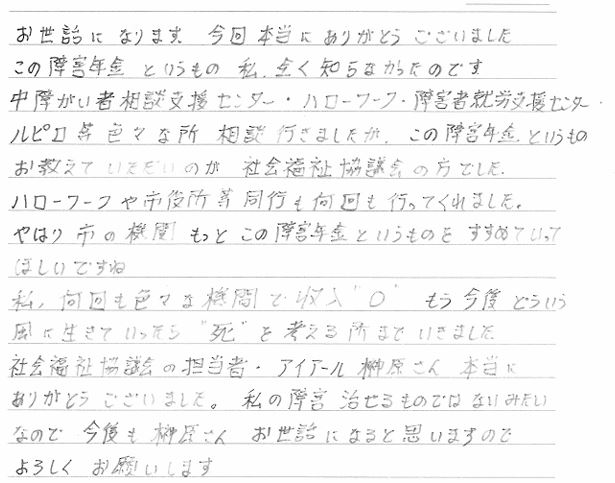 お世話になります。今回本当にありがとうございました
この障害年金というもの 私、全く知らなかったのです
中障がい者相談支援センター・ハローワーク・障害者就労支援センター・
ルピロ等色々な所 相談行きましたが、この障害年金というもの
お教えていただいのが 社会福祉協議会の方でした。
ハローワークや市役所等同行も何回も行ってくれました。
やはり市の機関 もっとこの障害年金というものをすすめていって
ほしいですね
私、何回も色々な機関で収入"0" もう今後どういう
風に生きていったら "死"を考える所までいきました
社会福祉協議会の担当者・アイアール榊原さん 本当に
ありがとうございました。私の障害 治せるものではないみたい
なので 今後も榊原さん お世話になると思いますので
よろしくお願いします